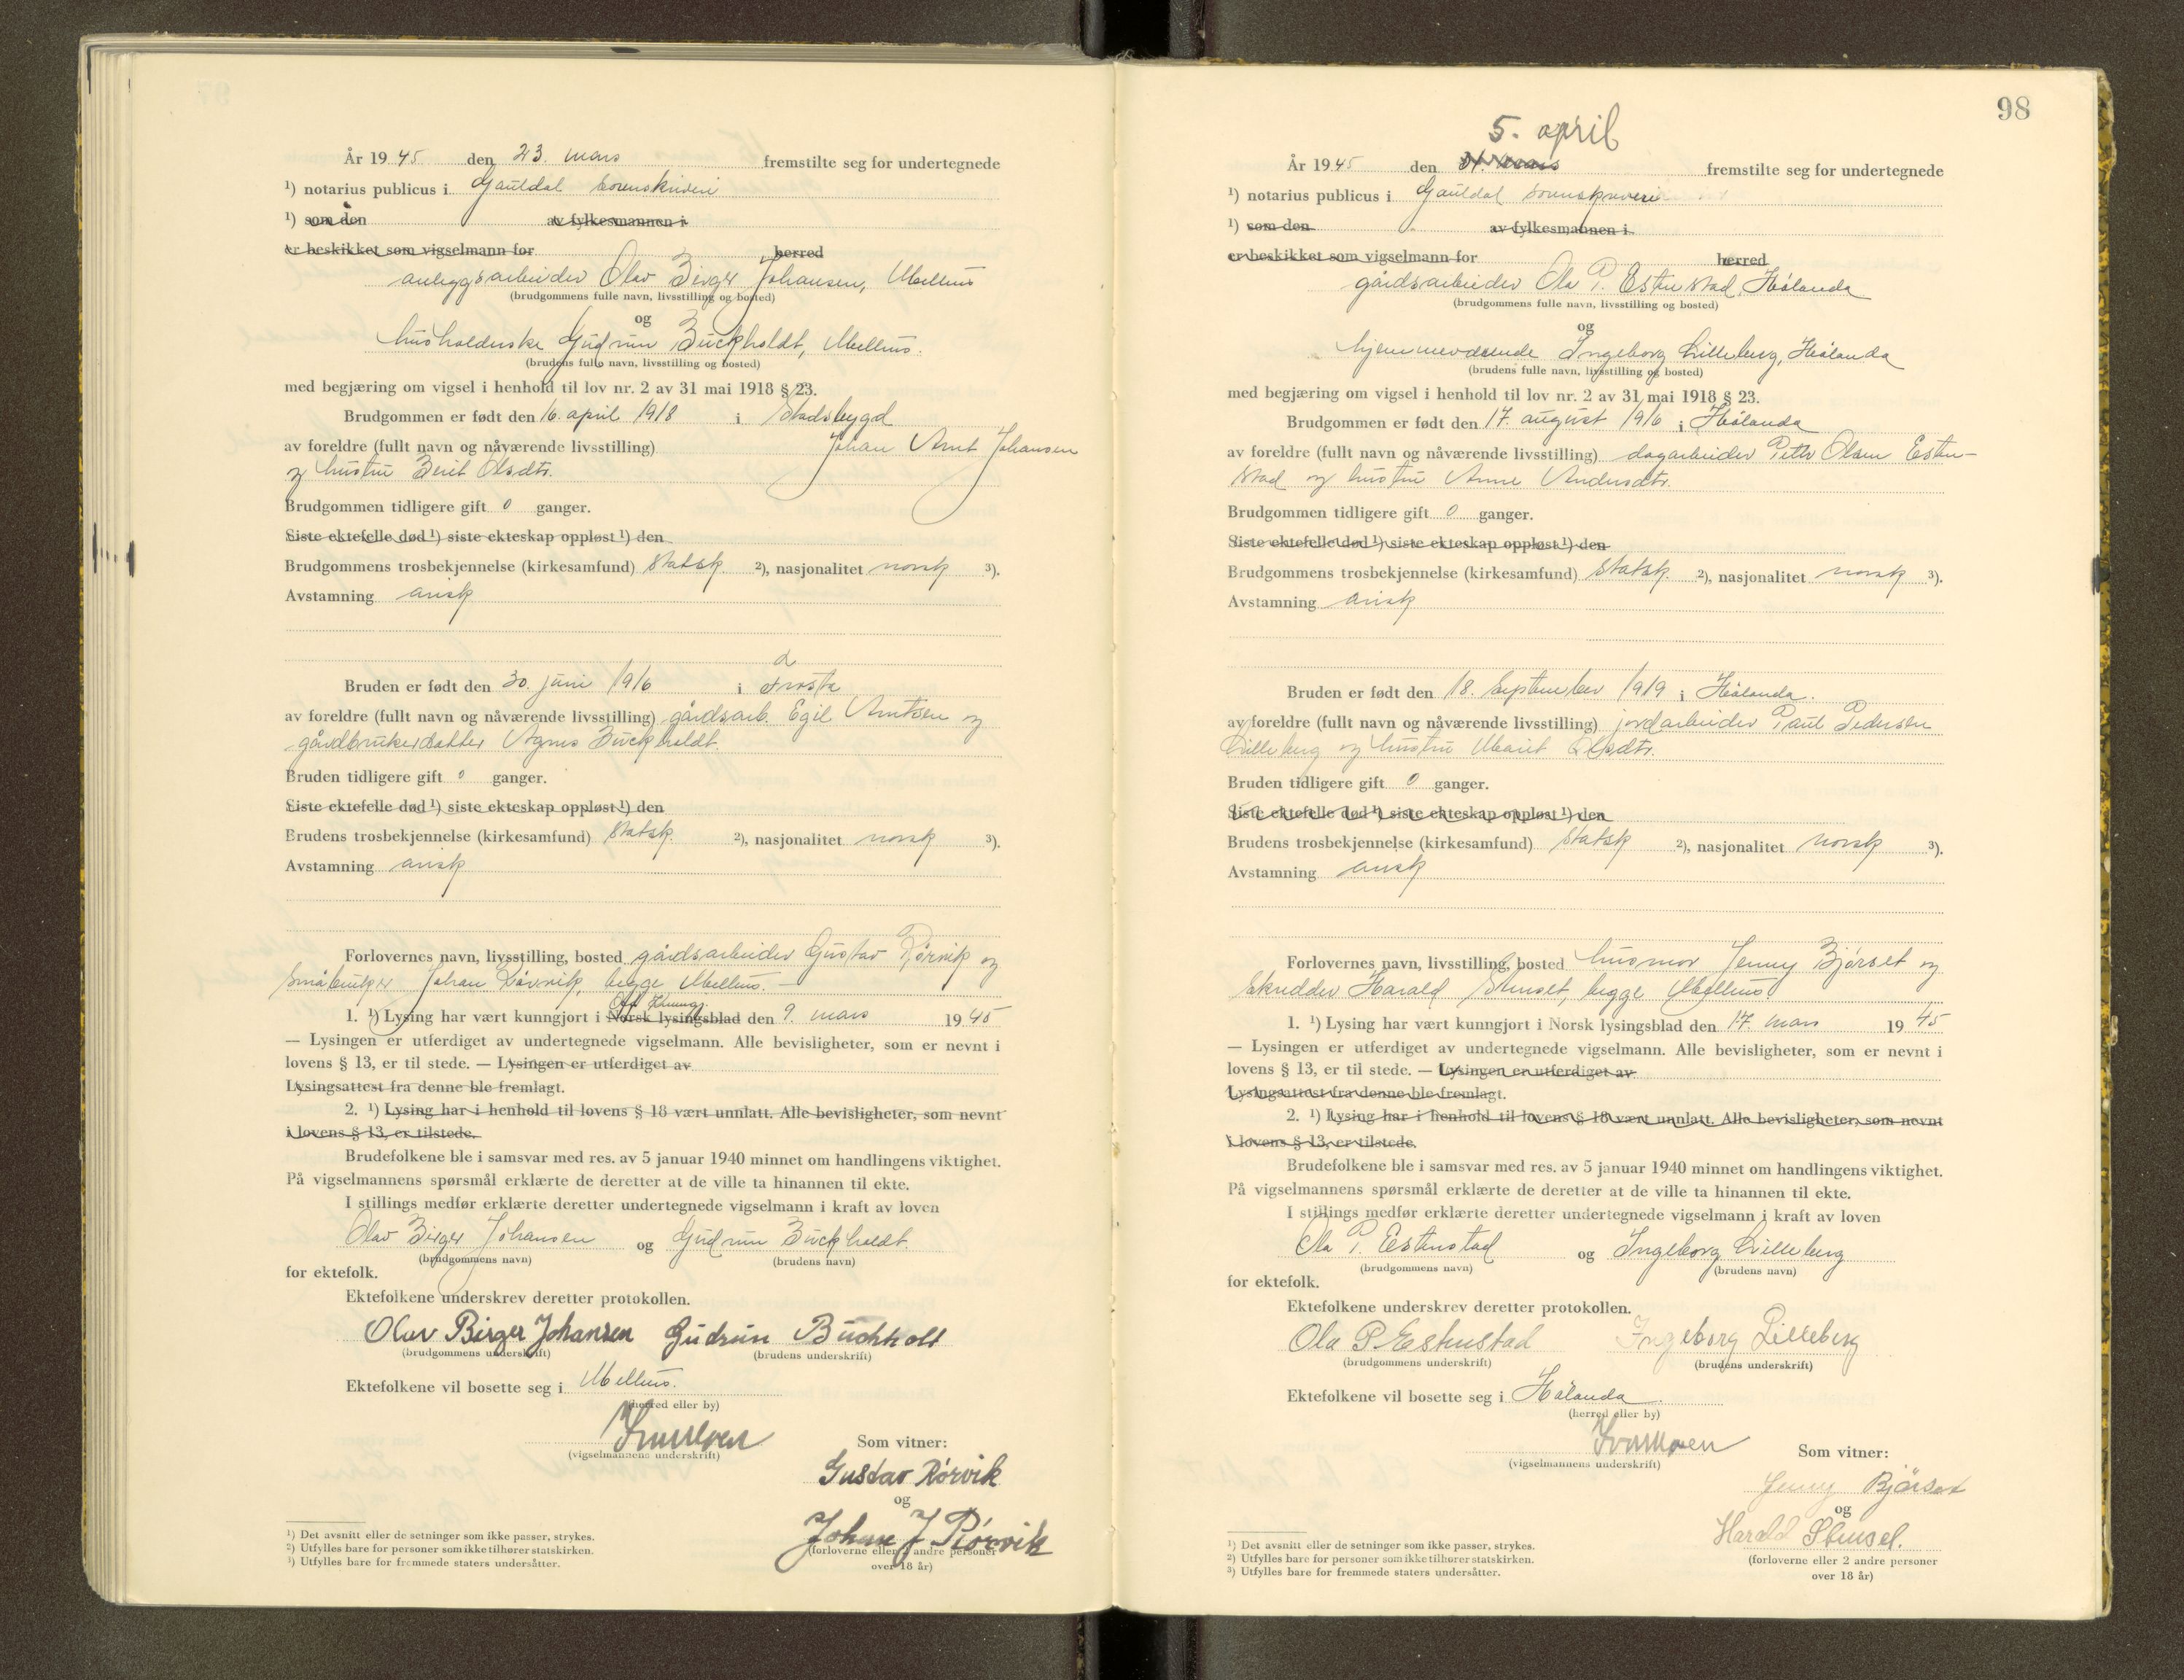 År 1945 den 23. mars fremstilte seg for undertegnede
¹) notarius publicus i Gauldal sorenskriveri
¹) som den av fylkesmannen i
er beskikket som vigselmann for herred
anleggsarbeider Olav Birger Johansen, Melhus
(brudgommens fulle navn, livsstilling og bosted)
og
husholderske Gudrun Buckholdt, Melhus.
(brudens fulle navn, livsstilling og bosted)
med begjæring om vigsel i henhold til lov nr. 2 av 31 mai 1918 § 23.
Brudgommen er født den 16. april 1918 i Stadsbygd
av foreldre (fullt navn og nåværende livsstilling) Johan Arnt Johansen
og hustru Berit Olsdtr.
Brudgommen tidligere gift 0 ganger.
Siste ektefelle død ¹) siste ekteskap oppløst ¹) den
Brudgommens trosbekjennelse (kirkesamfund) statsk. ²), nasjonalitet norsk ³).
Avstamning arisk
Bruden er født den 30. juni 1916 i Frosta
av foreldre (fullt navn og nåværende livsstilling) gårdsarb. Egil Arntsen og
gårdbrukerdatter Agnes Buckholdt.
Bruden tidligere gift 0 ganger.
Siste ektefelle død ¹) siste ekteskap oppløst ¹) den
Brudens trosbekjennelse (kirkesamfund) statsk. ²), nasjonalitet norsk ³).
Avstamning arisk
Forlovernes navn, livsstilling, bosted gårdsarbeider Gustav Rørvik og
småbruker Johan Rørvik, begge Melhus. —
1. ¹) Lysing har vært kunngjort i Norsk lysingsblad den 9. mars 1945
— Lysingen er utferdiget av undertegnede vigselmann. Alle bevisligheter, som er nevnt i
lovens § 13, er til stede. — Lysingen er utferdiget av
Lysingsattest fra denne ble fremlagt.
2. ¹) Lysing har i henhold til lovens § 18 vært unnlatt. Alle bevisligheter, som nevnt
i lovens § 13, er tilstede.
Brudefolkene ble i samsvar med res. av 5 januar 1940 minnet om handlingens viktighet.
På vigselmannens spørsmål erklærte de deretter at de ville ta hinannen til ekte.
I stillings medfør erklærte deretter undertegnede vigselmann i kraft av loven
Olav Birger Johansen og Gudrun Buckholdt.
(brudgommens navn) (brudens navn)
for ektefolk.
Ektefolkene underskrev deretter protokollen.
Olav Birger Johansen Gudrun Buchholt
(brudgommens underskrift) (brudens underskrift)
Ektefolkene vil bosette seg i Melhus.
(herred eller by)
(vigselmannens underskrift)
Som vitner:
Gustav Rörvik
og
Johan J Rörvik
(forloverne eller 2 andre personer
over 18 år)
¹) Det avsnitt eller de setninger som ikke passer, strykes.
²) Utfylles bare for personer som ikke tilhører statskirken.
³) Utfylles bare for fremmede staters undersåtter.
98
5. april
År 1945 den fremstilte seg for undertegnede
¹) notarius publicus i Gauldal sorenskriveri
¹) som den av fylkesmannen i
er beskikket som vigselmann for herred
gårdsarbeider Ola P. Estenstad, Hølanda
(brudgommens fulle navn, livsstilling og bosted)
og
hjemmeværende Ingeborg Lilleberg, Hølanda
(brudens fulle navn, livsstilling og bosted)
med begjæring om vigsel i henhold til lov nr. 2 av 31 mai 1918 § 23.
Brudgommen er født den 17. august 1916 i Hølanda
av foreldre (fullt navn og nåværende livsstilling) dagarbeider Petter Olsen Esten-
stad og hustru Anne Andersdtr.
Brudgommen tidligere gift 0 ganger.
Siste ektefelle død ¹) siste ekteskap oppløst ¹) den
Brudgommens trosbekjennelse (kirkesamfund) statsk. ²), nasjonalitet norsk ³).
Avstamning arisk
Bruden er født den 18. september 1919 i Hølanda.
av foreldre (fullt navn og nåværende livsstilling) jordarbeider Paul Pedersen
Lilleberg og hustru Marit Olsdtr.
Bruden tidligere gift 0 ganger.
Siste ektefelle død ¹) siste ekteskap oppløst ¹) den
Brudens trosbekjennelse (kirkesamfund) statsk ²), nasjonalitet norsk ³).
Avstamning arisk
Forlovernes navn, livsstilling, bosted husmor Jenny Bjørset og
skredder Harald Stenset, begge Melhus
1. ¹) Lysing har vært kunngjort i Norsk lysingsblad den 17. mars 1945
— Lysingen er utferdiget av undertegnede vigselmann. Alle bevisligheter, som er nevnt i
lovens § 13, er til stede. — Lysingen er utferdiget av
Lysingsattest fra denne ble fremlagt.
2. ¹) Lysing har i henhold til lovens § 18 vært unnlatt. Alle bevisligheter, som nevnt
i lovens § 13, er tilstede.
Brudefolkene ble i samsvar med res. av 5 januar 1940 minnet om handlingens viktighet.
På vigselmannens spørsmål erklærte de deretter at de ville ta hinannen til ekte.
I stillings medfør erklærte deretter undertegnede vigselmann i kraft av loven
Ola P. Estenstad og Ingeborg Lilleberg
(brudgommens navn) (brudens navn)
for ektefolk.
Ektefolkene underskrev deretter protokollen.
Ola P. Estenstad Ingeborg Lilleberg
(brudgommens underskrift) (brudens underskrift)
Ektefolkene vil bosette seg i Hølanda.
(herred eller by)
(vigselmannens underskrift)
Som vitner:
Jenny Bjørset
og
Harald Stenset.
(forloverne eller 2 andre personer
over 18 år)
¹) Det avsnitt eller de setninger som ikke passer, strykes.
²) Utfylles bare for personer som ikke tilhører statskirken.
³) Utfylles bare for fremmede staters undersåtter.